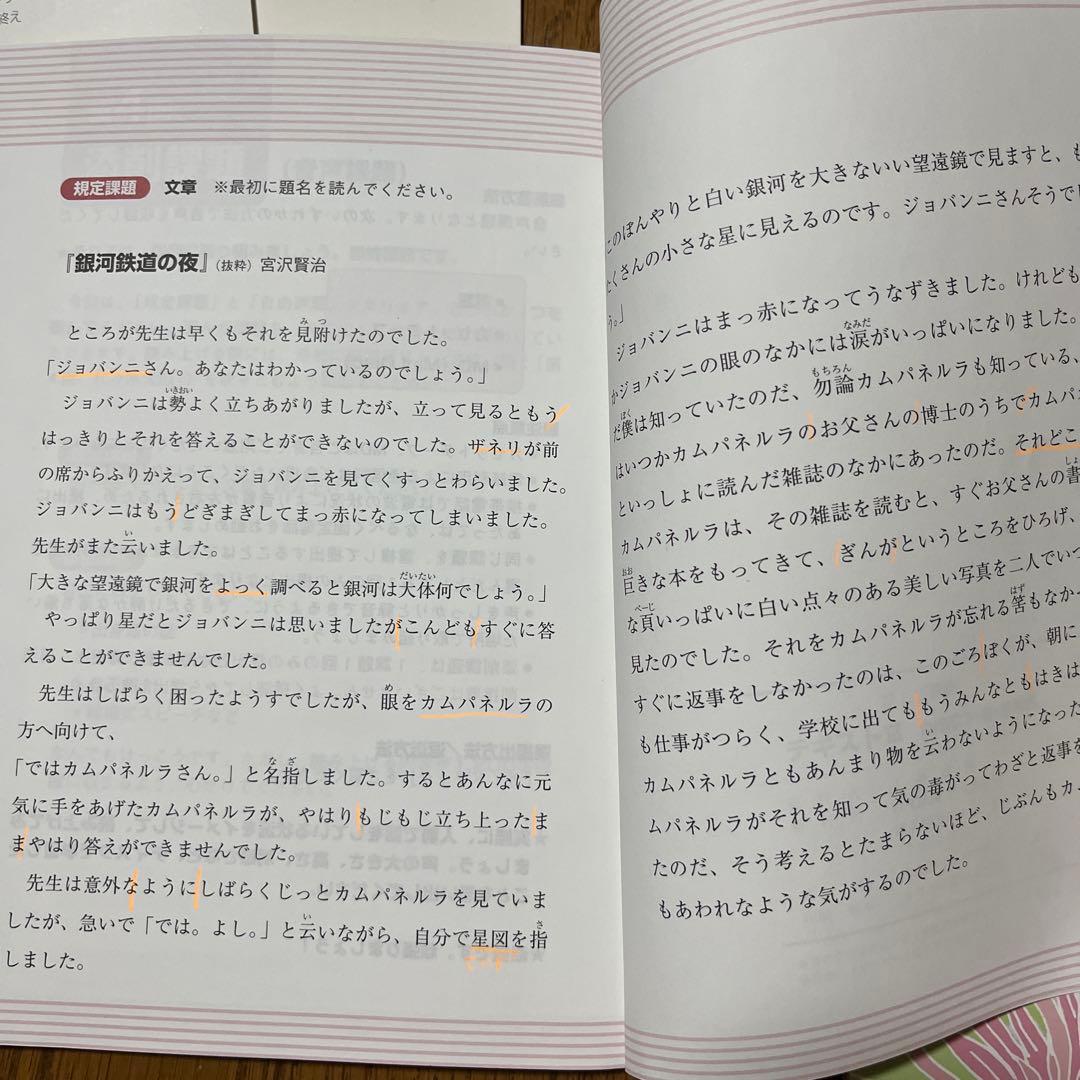 終え
規定課題 文章 ※最初に題名を読んでください。
『銀河鉄道の夜』(抜粋) 宮沢賢治
みつ
ところが先生は早くもそれを見附けたのでした。
「ジョバンニさん。あなたはわかっているのでしょう。」
いきおい
ジョバンニは勢よく立ちあがりましたが、立って見るともう
はっきりとそれを答えることができないのでした。ザネリが前
の席からふりかえって、ジョバンニを見てくすっとわらいました。
ジョバンニはもうどぎまぎしてまっ赤になってしまいました。
い
先生がまた云いました。
だいたい
「大きな望遠鏡で銀河をよっく調べると銀河は大体何でしょう。」
やっぱり星だとジョバンニは思いましたがこんどもすぐに答
えることができませんでした。
め
先生はしばらく困ったようすでしたが、眼をカムパネルラの
方へ向けて、
なざ
「ではカムパネルラさん。」と名指しました。するとあんなに元
気に手をあげたカムパネルラが、やはりもじもじ立ち上ったま
まやはり答えができませんでした。
先生は意外なようにしばらくじっとカムパネルラを見ていま
い さ
したが、急いで「では。よし。」と云いながら、自分で星図を指
しました。
このぼんやりと白い銀河を大きないい望遠鏡で見ますと、も
たくさんの小さな星に見えるのです。ジョバンニさんそうで
う。」
ジョバンニはまっ赤になってうなずきました。けれども
なみだ
かジョバンニの眼のなかには涙がいっぱいになりました。
ぼく もちろん
だ僕は知っていたのだ、勿論カムパネルラも知っている、
はいつかカムパネルラのお父さんの博士のうちでカムパ
といっしょに読んだ雑誌のなかにあったのだ。それどこ
しょ
カムパネルラは、その雑誌を読むと、すぐお父さんの書
おお
巨きな本をもってきて、ぎんがというところをひろげ、
ぺーじ
な頁いっぱいに白い点々のある美しい写真を二人でいつ
はず
見たのでした。それをカムパネルラが忘れる筈もなか
すぐに返事をしなかったのは、このごろぼくが、朝に
も仕事がつらく、学校に出てももうみんなともはきは
い
カムパネルラともあんまり物を云わないようになった
ムパネルラがそれを知って気の毒がってわざと返事を
たのだ、そう考えるとたまらないほど、じぶんもカム
もあわれなような気がするのでした。